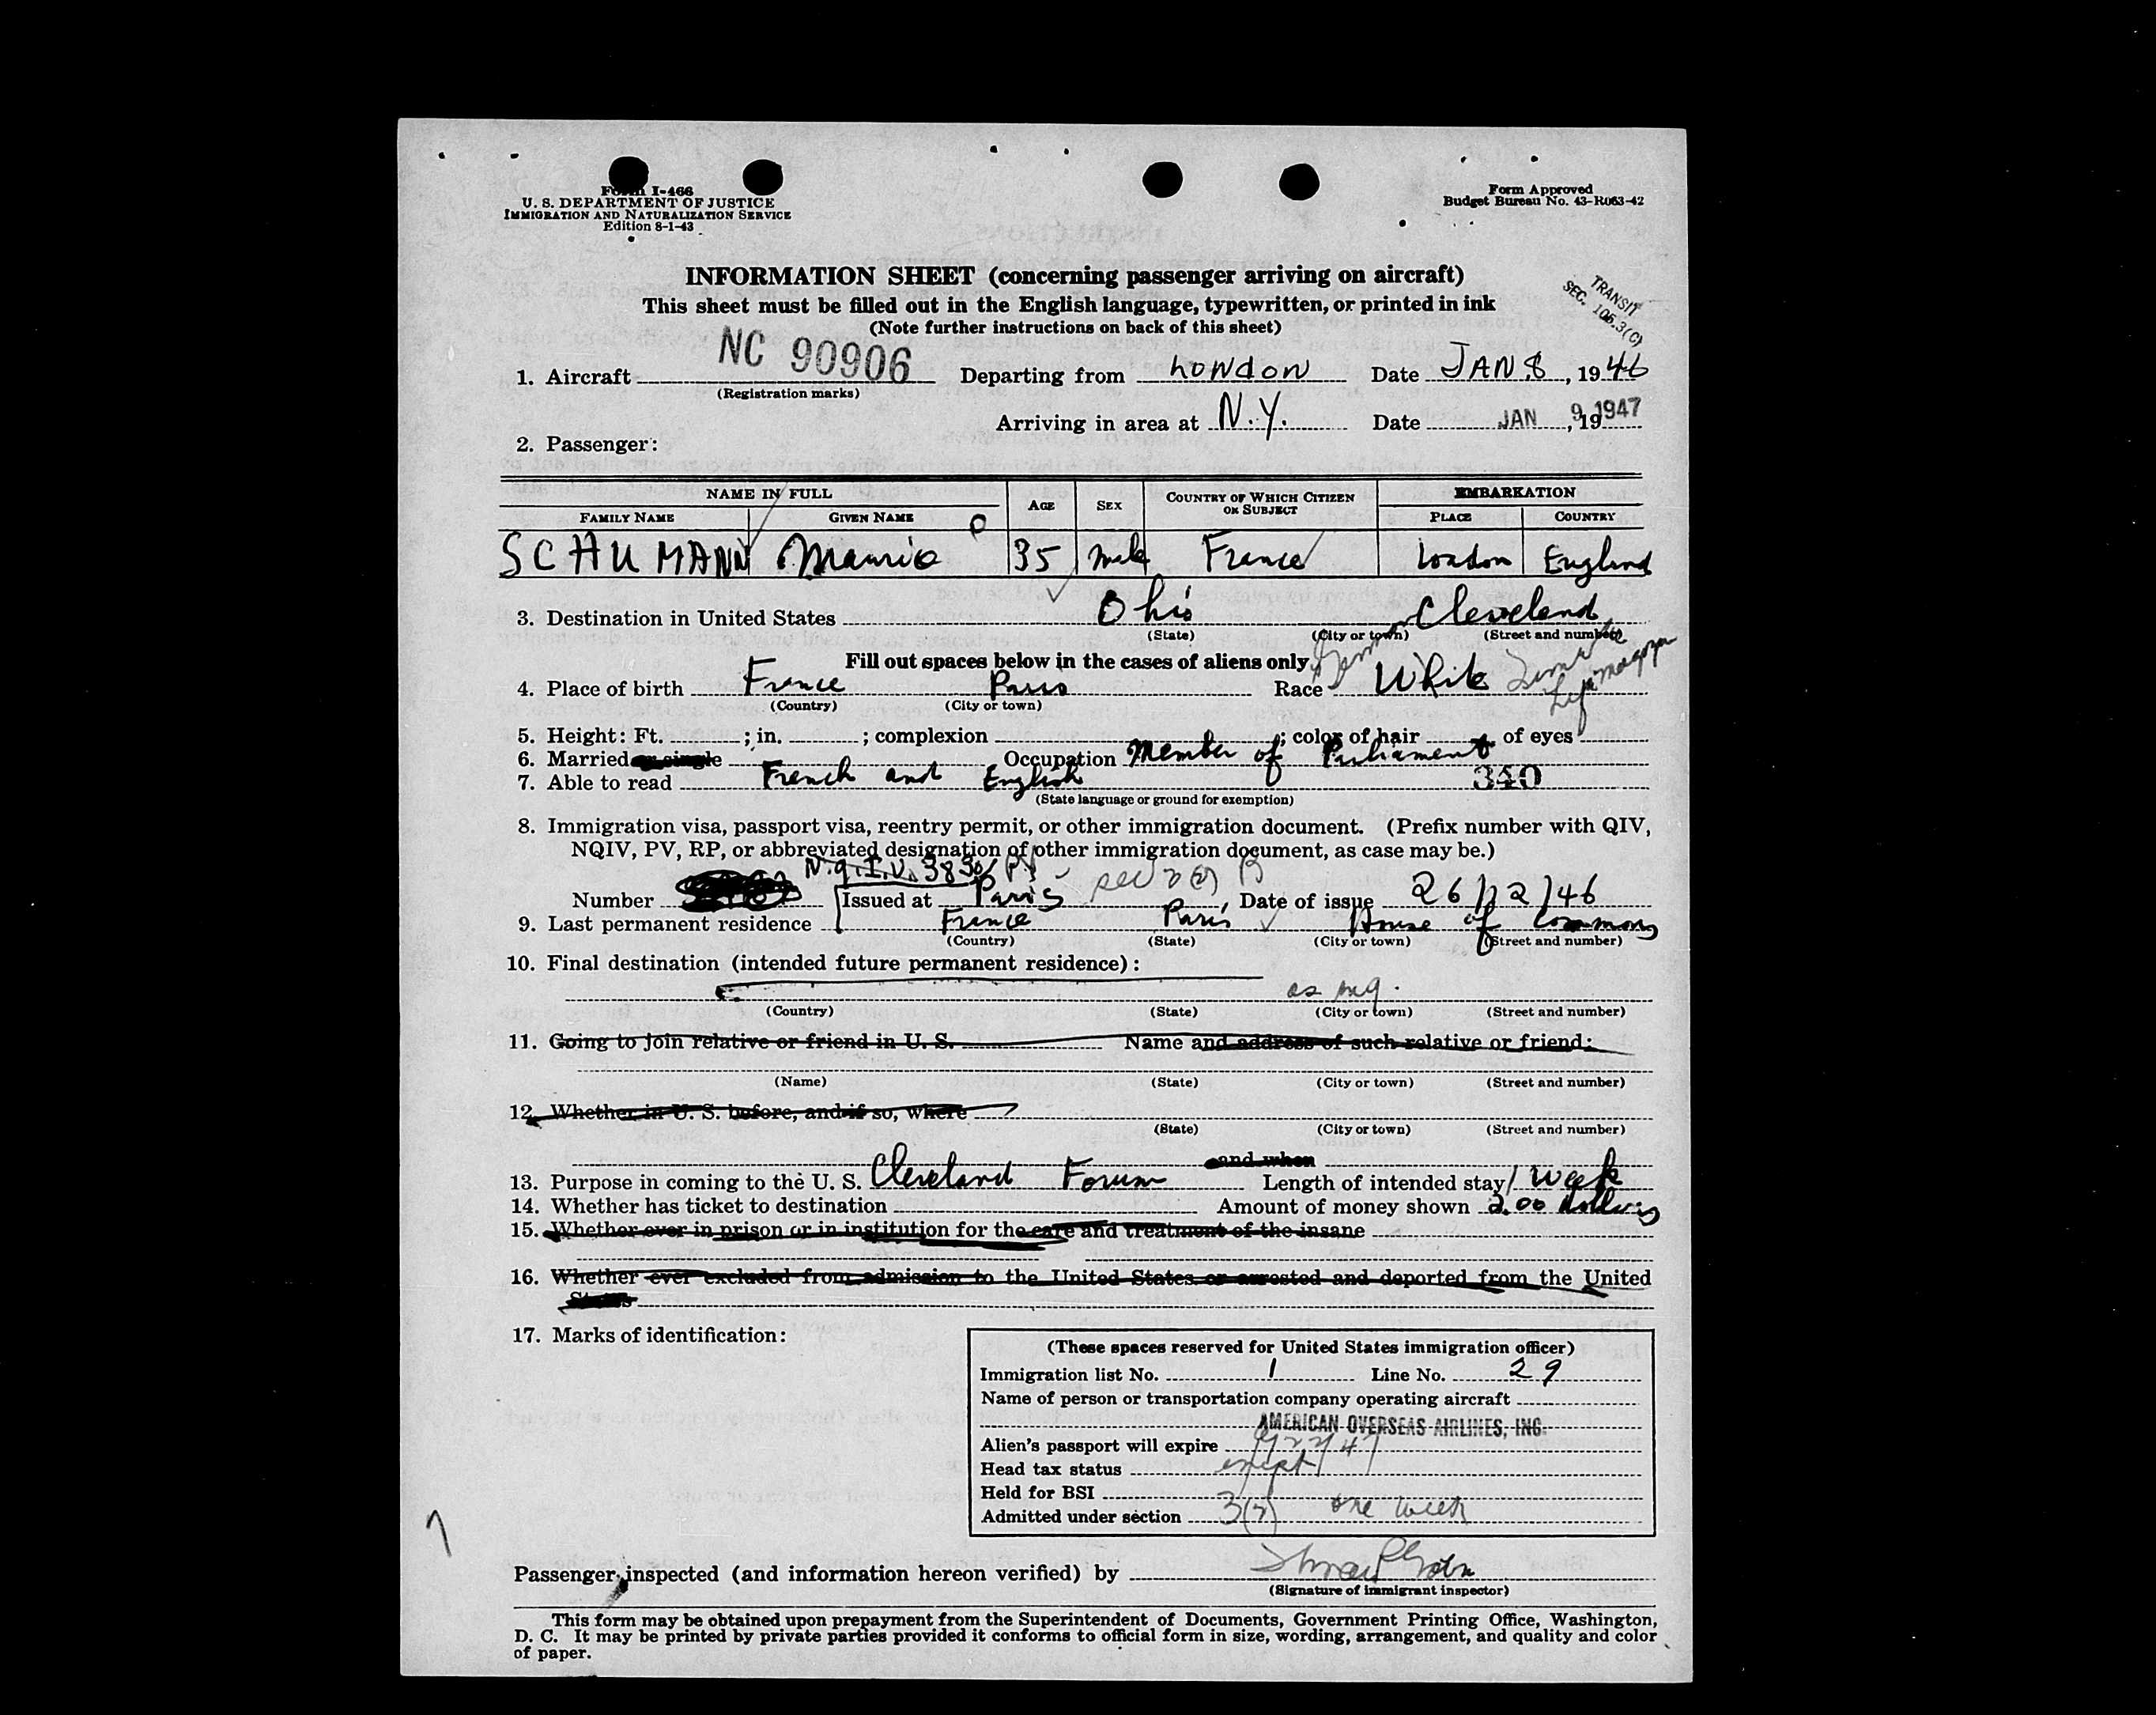 Form I-466
U. S. DEPARTMENT OF JUSTICE
IMMIGRATION AND NATURALIZATION SERVICE
Edition 8-1-43
Form Approved
Budget Bureau No. 43-R063-42
INFORMATION SHEET (concerning passenger arriving on aircraft)
This sheet must be filled out in the English language, typewritten, or printed in ink
(Note further instructions on back of this sheet)
TRANSIT
SEC. 105.3(C)
1. Aircraft NC 90906 Departing from London Date JAN 8, 1946
(Registration marks)
Arriving in area at N.Y. Date JAN 9, 19 1947
2. Passenger:
NAME IN FULL AGE SEX COUNTRY OF WHICH CITIZEN OR SUBJECT EMBARKATION
FAMILY NAME GIVEN NAME PLACE COUNTRY
SCHUMANN Maurice 35 Male France London England
3. Destination in United States Ohio Cleveland
(State) (City or town) (Street and number)
Fill out spaces below in the cases of aliens only
4. Place of birth France Paris Race White
(Country) (City or town)
5. Height: Ft. ; in. ; complexion ; color of hair of eyes
6. Married or single Occupation Member of Parliament
7. Able to read French and English 340
(State language or ground for exemption)
8. Immigration visa, passport visa, reentry permit, or other immigration document. (Prefix number with QIV,
NQIV, PV, RP, or abbreviated designation of other immigration document, as case may be.)
Number N.q.I.V. 3830/PV Issued at Paris, Date of issue 26/12/46
9. Last permanent residence France Paris House of Commons
(Country) (State) (City or town) (Street and number)
10. Final destination (intended future permanent residence):
(Country) (State) (City or town) (Street and number)
11. Going to join relative or friend in U. S. Name and address of such relative or friend:
(Name) (State) (City or town) (Street and number)
12. Whether in U. S. before, and if so, where
(State) (City or town) (Street and number)
and when
13. Purpose in coming to the U. S. Cleveland Forum Length of intended stay 1 week
14. Whether has ticket to destination Amount of money shown 2.00 dollars
15. Whether ever in prison or in institution for the care and treatment of the insane
16. Whether ever excluded from admission to the United States or arrested and deported from the United
States
17. Marks of identification:
(These spaces reserved for United States immigration officer)
Immigration list No. 1 Line No. 29
Name of person or transportation company operating aircraft
AMERICAN OVERSEAS AIRLINES, INC.
Alien's passport will expire
Head tax status
Held for BSI
Admitted under section 3(2) one week
Passenger inspected (and information hereon verified) by
(Signature of immigrant inspector)
This form may be obtained upon prepayment from the Superintendent of Documents, Government Printing Office, Washington,
D. C. It may be printed by private parties provided it conforms to official form in size, wording, arrangement, and quality and color
of paper.